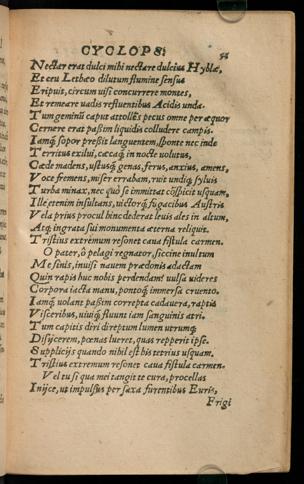 CYCLOPS. 54
Nectar erat dulci mihi nectare dulcius Hyblæ,
Et ceu Lethæo dilutum flumine sensus
Eripuit, circum uisi concurrere montes,
Et remeare uadis refluentibus Acidis unda.
Tum geminũ caput attollẽs pecus omne per æquor
Cernere erat paßim liquidis colludere campis.
Iamq́; sopor preßit languentem, sponte nec inde
Territus exilui, cæcaq́; in nocte uolutus,
Cæde madens, ustusq́; genas, ferus, anxius, amens,
Voce fremens, miser errabam, ruit undiq; syluis
Turba minax, nec quò se immittat cõspicit usquam,
Ille etenim insultans, uictorq́; fugacibus Austris
Vela prius procul hinc dederat leuis ales in altum,
Atq; ingrata sui monumenta æterna reliquit.
Tristius extremum resonet caua fistula carmen.
O pater, ô pelagi regnator, siccine inultum
Me sinis, inuisi nauem prædonis adactam
Quin rapis huc nobis perdendam? uulsa uideres
Corpora iacta manu, pontoq́; immersa cruento.
Iamq́; uolant paßim correpta cadauera, raptis
Visceribus, uiuiq́; fluunt iam sanguinis atri.
Tum capitis diri direptum lumen utrumq́;
Disijcerem, pœnas lueret, quas repperit ipse.
Supplicijs quando nihil est his tetrius usquam.
Tristius extremum resonet caua fistula carmen.
Vel tu si qua mei tangit te cura, procellas
Inijce, ut impulsus per saxa furentibus Euris,
Frigi